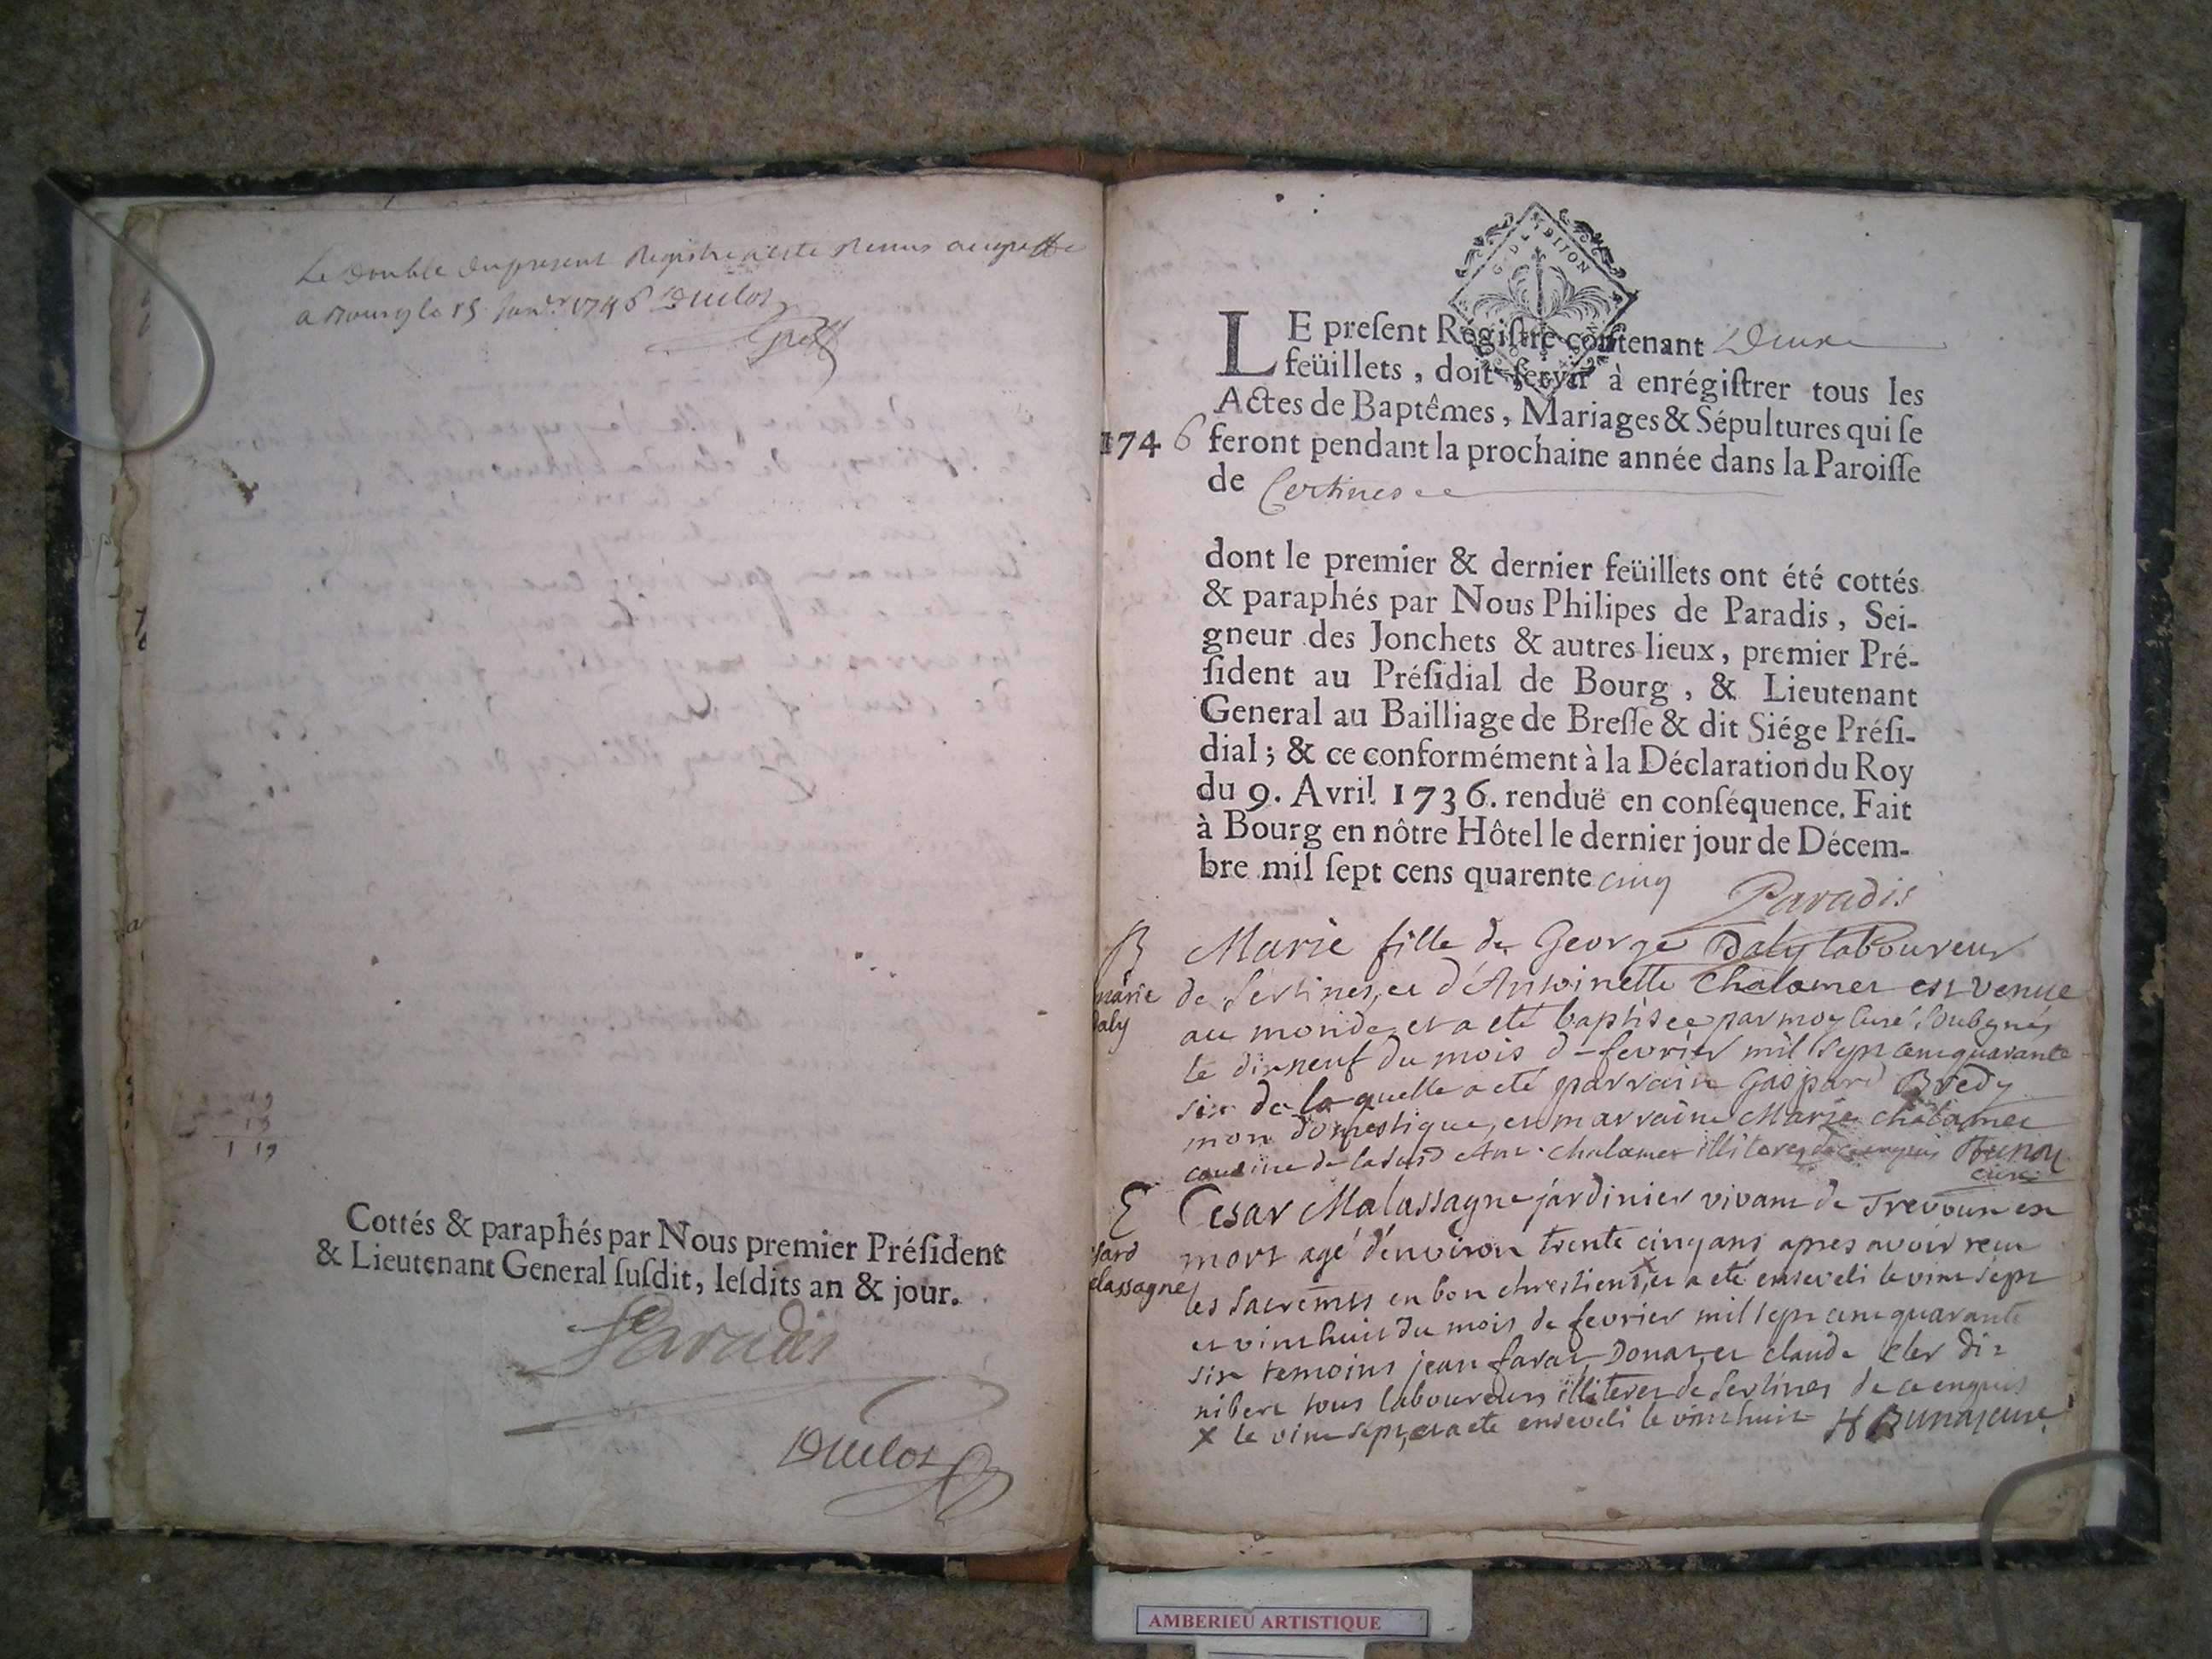 Le Double du present Registre a esté Remis au greffe
a Bourg le 15 Janer 1746 Duclos
Greff
19
13
1 19
Cottés & paraphés par Nous premier Préſident
& Lieutenant General ſuſdit, leſdits an & jour.
Paradis
Duclos
G. DE DIJON
LE preſent Régiſtre contenant Deux
feüillets, doit ſervir à enrégiſtrer tous les
Actes de Baptêmes, Mariages & Sépultures qui ſe
1746 feront pendant la prochaine année dans la Paroiſſe
de Certines
dont le premier & dernier feüillets ont été cottés
& paraphés par Nous Philipes de Paradis, Sei-
gneur des Jonchets & autres lieux, premier Pré-
ſident au Préſidial de Bourg, & Lieutenant
General au Bailliage de Breſſe & dit Siége Préſi-
dial; & ce conformément à la Déclaration du Roy
du 9. Avril 1736. renduë en conſéquence. Fait
à Bourg en nôtre Hôtel le dernier jour de Décem-
bre mil ſept cens quarente cinq
Paradis
B Marie fille de George Daly laboureur
marie de Sertines, et d'Antoinette Chalamer est venue
daly au monde et a eté baptisée par moy curé soubsigné
le dixneuf du mois de fevrier mil sept cent quarante
six de laquelle a eté parrain Gaspard Bredy
mon domestique, et marraine Marie chalamer
cousine de ladite Ant. chalamer illiteres de ce enquis
curé
E Cesar Malassagne jardinier vivant de Trevoux est
sard mort agé d'environ trente cinq ans apres avoir reçu
lassagne les sacremts en bon chrestient, x et a eté enseveli le vint sept
et vint huit du mois de fevrier mil sept cent quarante
six temoins jean favat, Donat, et claude
tous laboureurs illiteres de Sertines de ce enquis
x le vint sept, et a eté enseveli le vint huit
AMBERIEU ARTISTIQUE